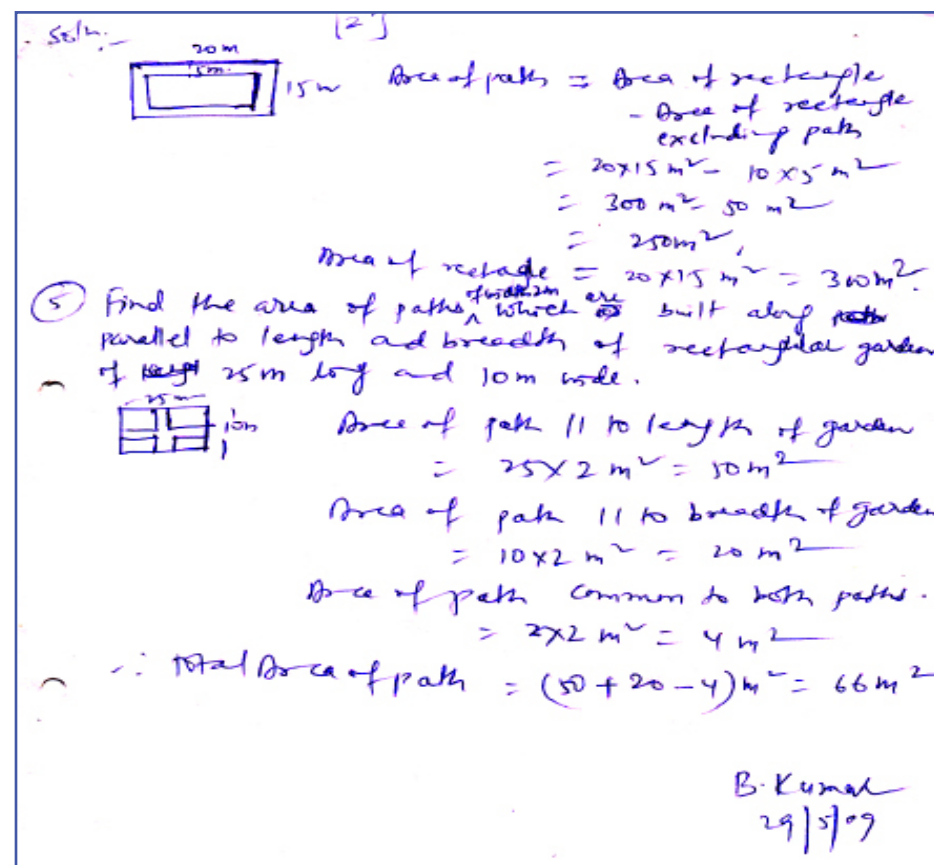 Soln.-
[2]
20m
5m.
15m
Area of path = Area of rectangle
- Area of rectangle
excluding path
= 20×15 m² - 10×5 m²
= 300 m² - 50 m²
= 250m²,
Area of rectagle = 20×15 m² = 300m².
⑤ Find the area of paths of width 2m which are built along
parallel to length and breadth of rectangular garden
of 25m long and 10m wide.
25m
10m
Area of path || to length of garden
= 25×2 m² = 50m²
Area of path || to breadth of garden
= 10×2 m² = 20 m²
Area of path common to both paths.
= 2×2 m² = 4 m²
∴ Total Area of path = (50+20-4)m² = 66m²
B. Kumar
29/5/09